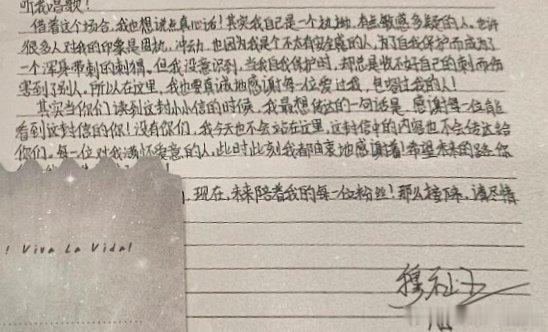 听我唱歌！
借着这个场合，我也想说点真心话！其实我自己是一个执拗，有点敏感多疑的人。也许
很多人对我的印象是固执，冲动，也因为我是个不太有安全感的人，为了自我保护而成为了
一个浑身带刺的刺猬。但我没意识到，当我自我保护时，却总是收不好自己的刺而伤
害到了别人。所以在这里，我也要真诚地感谢每一位爱过我，包容过我的人！
其实当你们读到这封小小信的时候，我最想传达的一句话是：感谢每一位能
看到这封信的你！没有你们，我今天也不会站在这里，这封信中的内容也不会传达给
你们。每一位对我满怀爱意的人，此时此刻我都由衷地感谢着！希望未来的路你
现在，未来陪着我的每一位粉丝！那么接下来，请尽情
! Viva La Vida!
穆祉丞